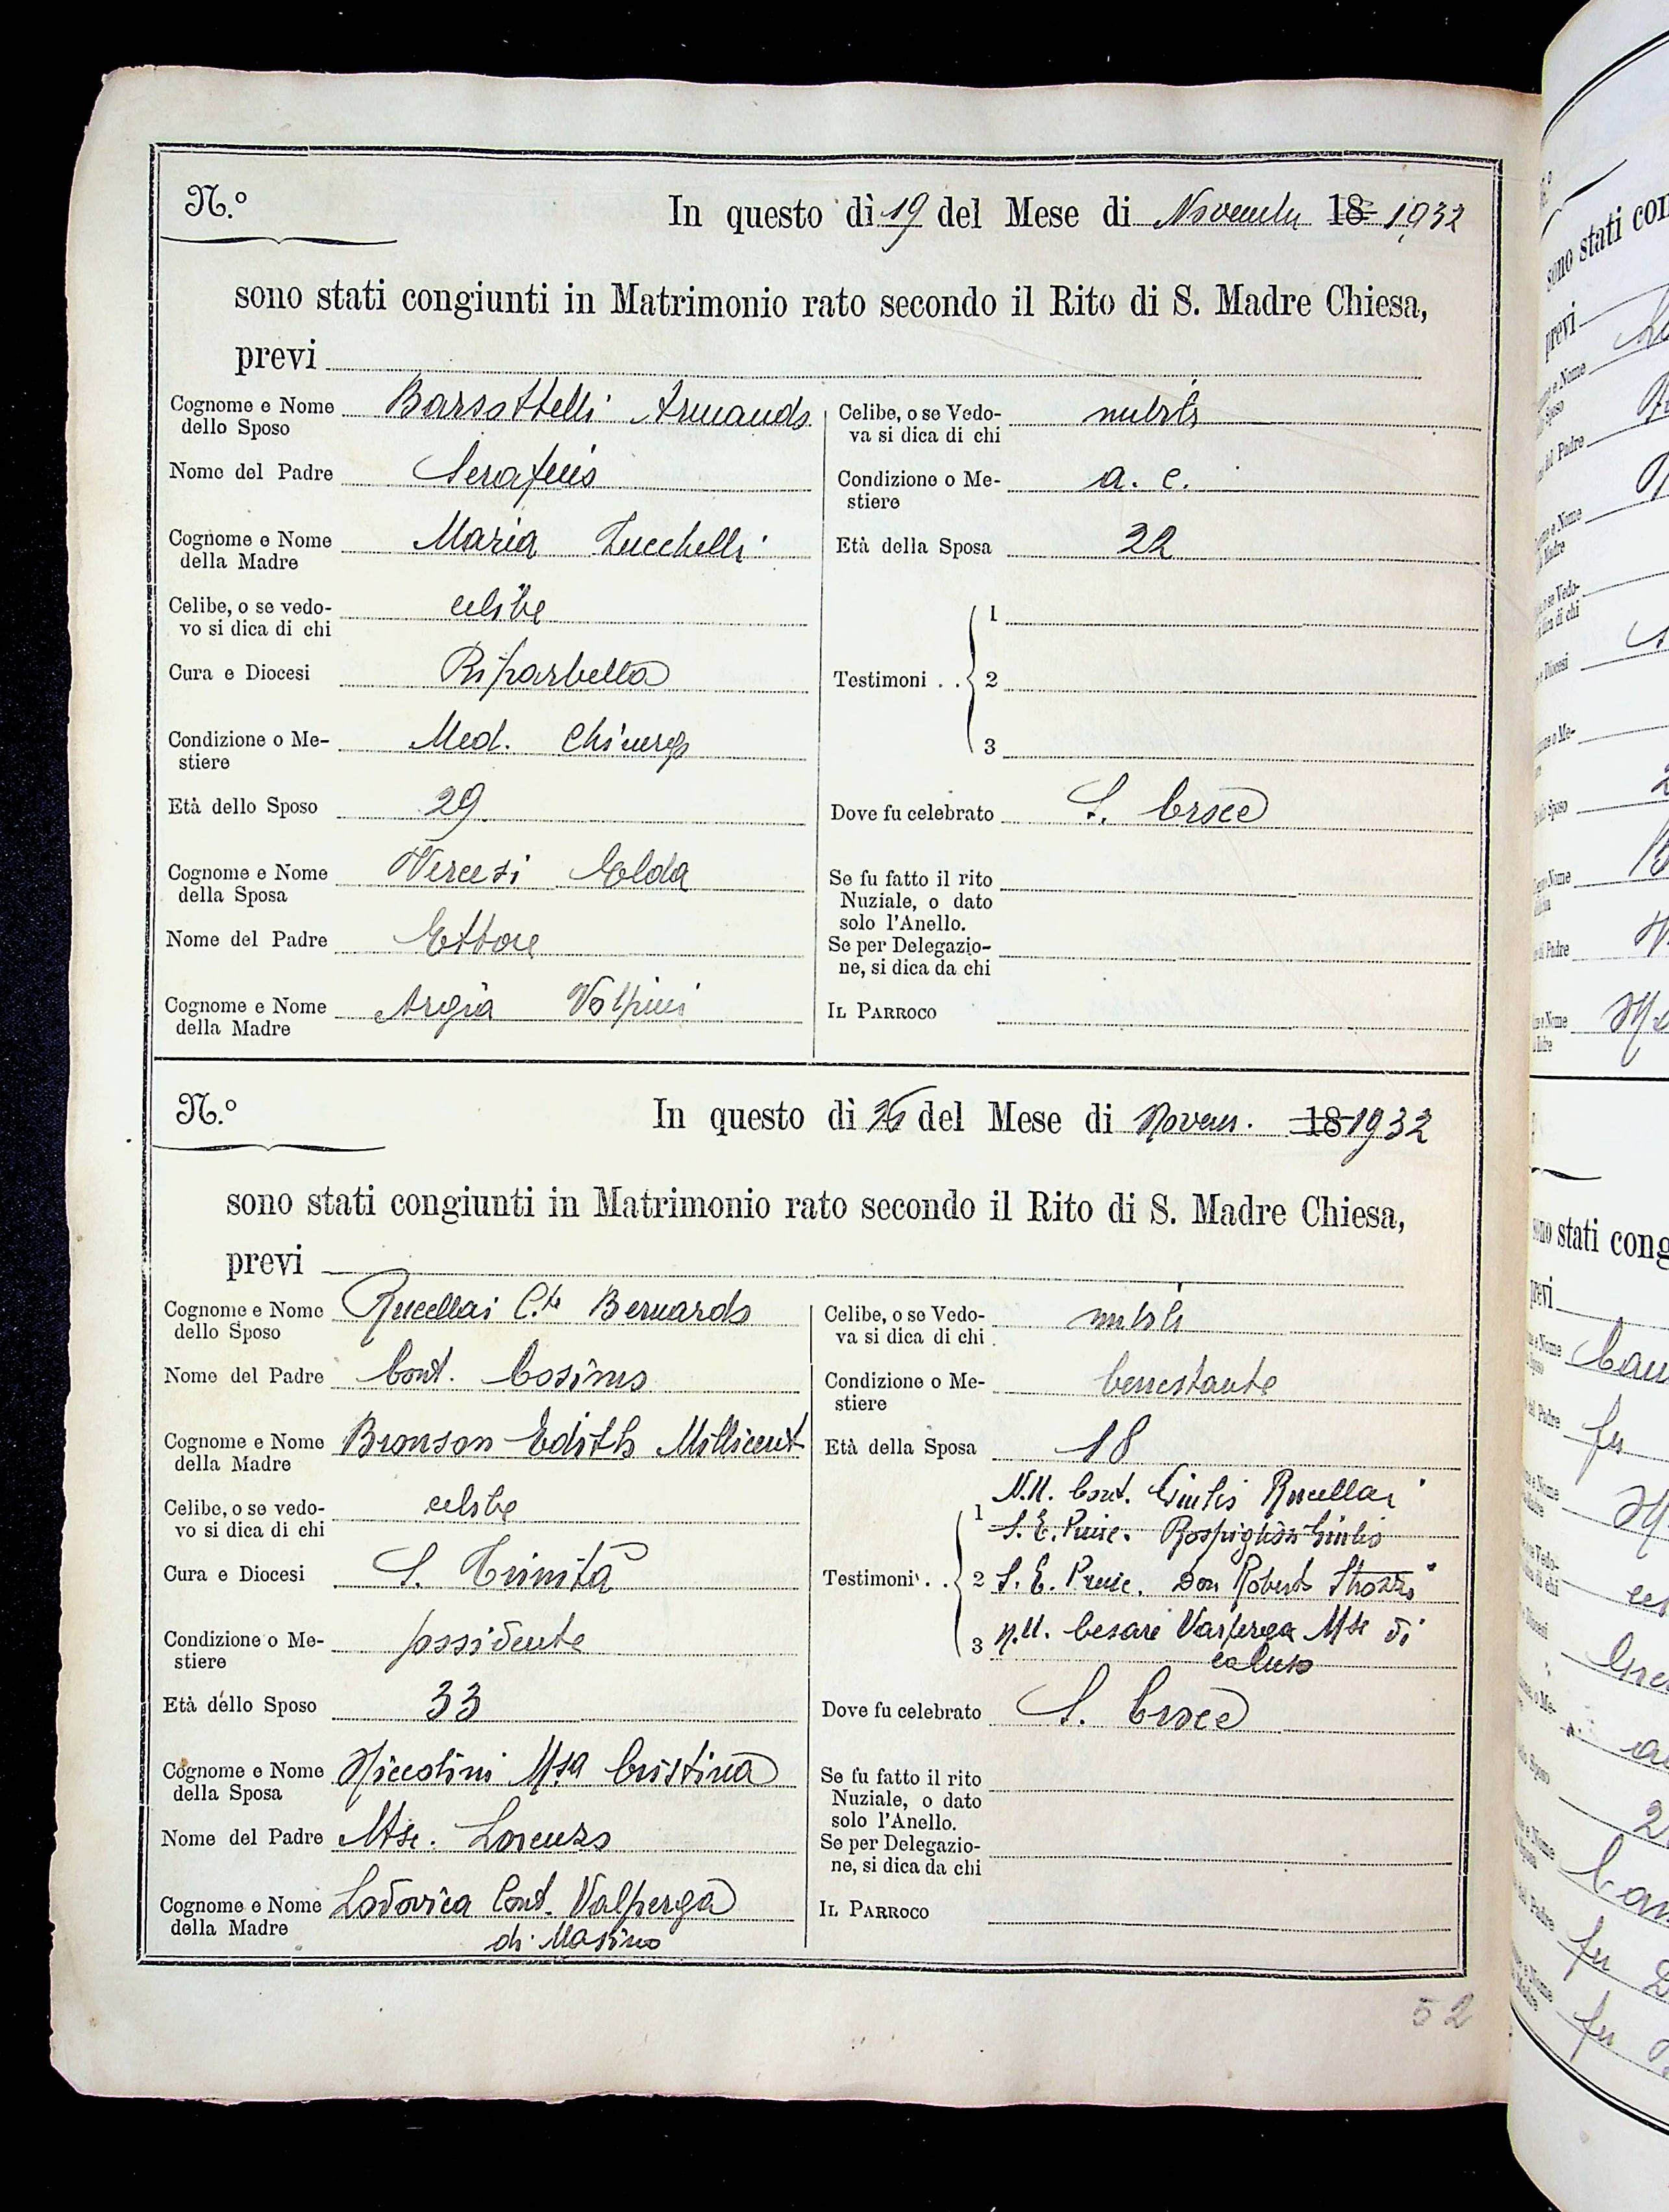 N.º
In questo dì 19 del Mese di Novembre 18 1932
sono stati congiunti in Matrimonio rato secondo il Rito di S. Madre Chiesa,
previ
Cognome e Nome dello Sposo Barsottelli Armando
Nome del Padre Serafino
Cognome e Nome della Madre Maria Zucchelli
Celibe, o se vedovo si dica di chi celibe
Cura e Diocesi Riparbella
Condizione o Mestiere Med. Chirurgo
Età dello Sposo 29
Cognome e Nome della Sposa Vercesi Elda
Nome del Padre Ettore
Cognome e Nome della Madre Argia Volpini
Celibe, o se Vedova si dica di chi nubile
Condizione o Mestiere a. c.
Età della Sposa 22
Testimoni . .
1
2
3
Dove fu celebrato S. Croce
Se fu fatto il rito Nuziale, o dato solo l'Anello.
Se per Delegazione, si dica da chi
IL PARROCO
N.º
In questo dì 26 del Mese di Novem. 18 1932
sono stati congiunti in Matrimonio rato secondo il Rito di S. Madre Chiesa,
previ
Cognome e Nome dello Sposo Rucellai C.te Bernardo
Nome del Padre Cont. Cosimo
Cognome e Nome della Madre Bronson Edith Millicent
Celibe, o se vedovo si dica di chi celibe
Cura e Diocesi S. Trinita
Condizione o Mestiere possidente
Età dello Sposo 33
Cognome e Nome della Sposa Niccolini M.sa Cristina
Nome del Padre Mse. Lorenzo
Cognome e Nome della Madre Lodovica Cont. Valperga
di Masino
Celibe, o se Vedova si dica di chi nubile
Condizione o Mestiere benestante
Età della Sposa 18
N.H. Cont. Giulio Rucellai
Testimoni . .
1 S. E. Princ. Rospigliosi Giulio
2 S. E. Princ. Don Roberto Strozzi
3 N.H. Cesare Valperga Mse di
Caluso
Dove fu celebrato S. Croce
Se fu fatto il rito Nuziale, o dato solo l'Anello.
Se per Delegazione, si dica da chi
IL PARROCO
52